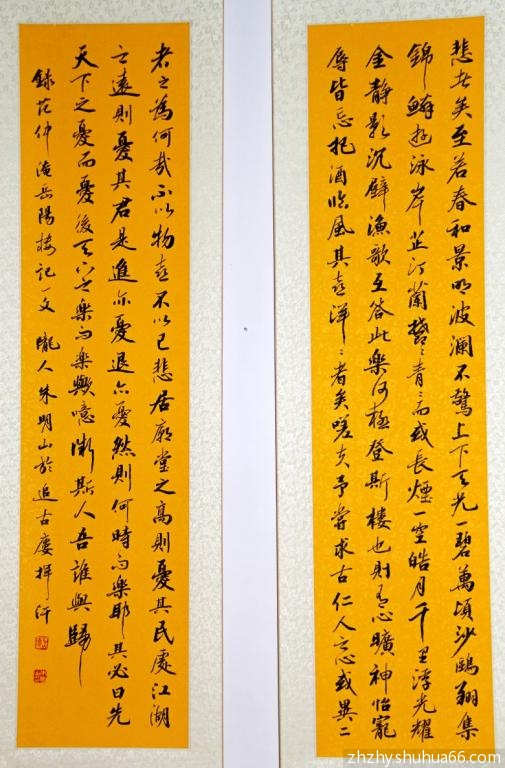 悲者矣至若春和景明波瀾不驚上下天光一碧萬頃沙鷗翔集
錦鱗游泳岸芷汀蘭鬱〻青〻而或長煙一空皓月千里浮光耀
金靜影沉壁漁歌互答此樂何極登斯樓也則有心曠神怡寵
辱皆忘把酒臨風其喜洋〻者矣嗟夫予嘗求古仁人之心或異二
者之為何哉不以物喜不以己悲居廟堂之高則憂其民處江湖
之遠則憂其君是進亦憂退亦憂然則何時而樂耶其必曰先
天下之憂而憂後天下之樂而樂歟噫微斯人吾誰與歸
錄范仲淹岳陽樓記一文 隴人朱明山於追古廔揮汗
zhzhy.shuhua66.com